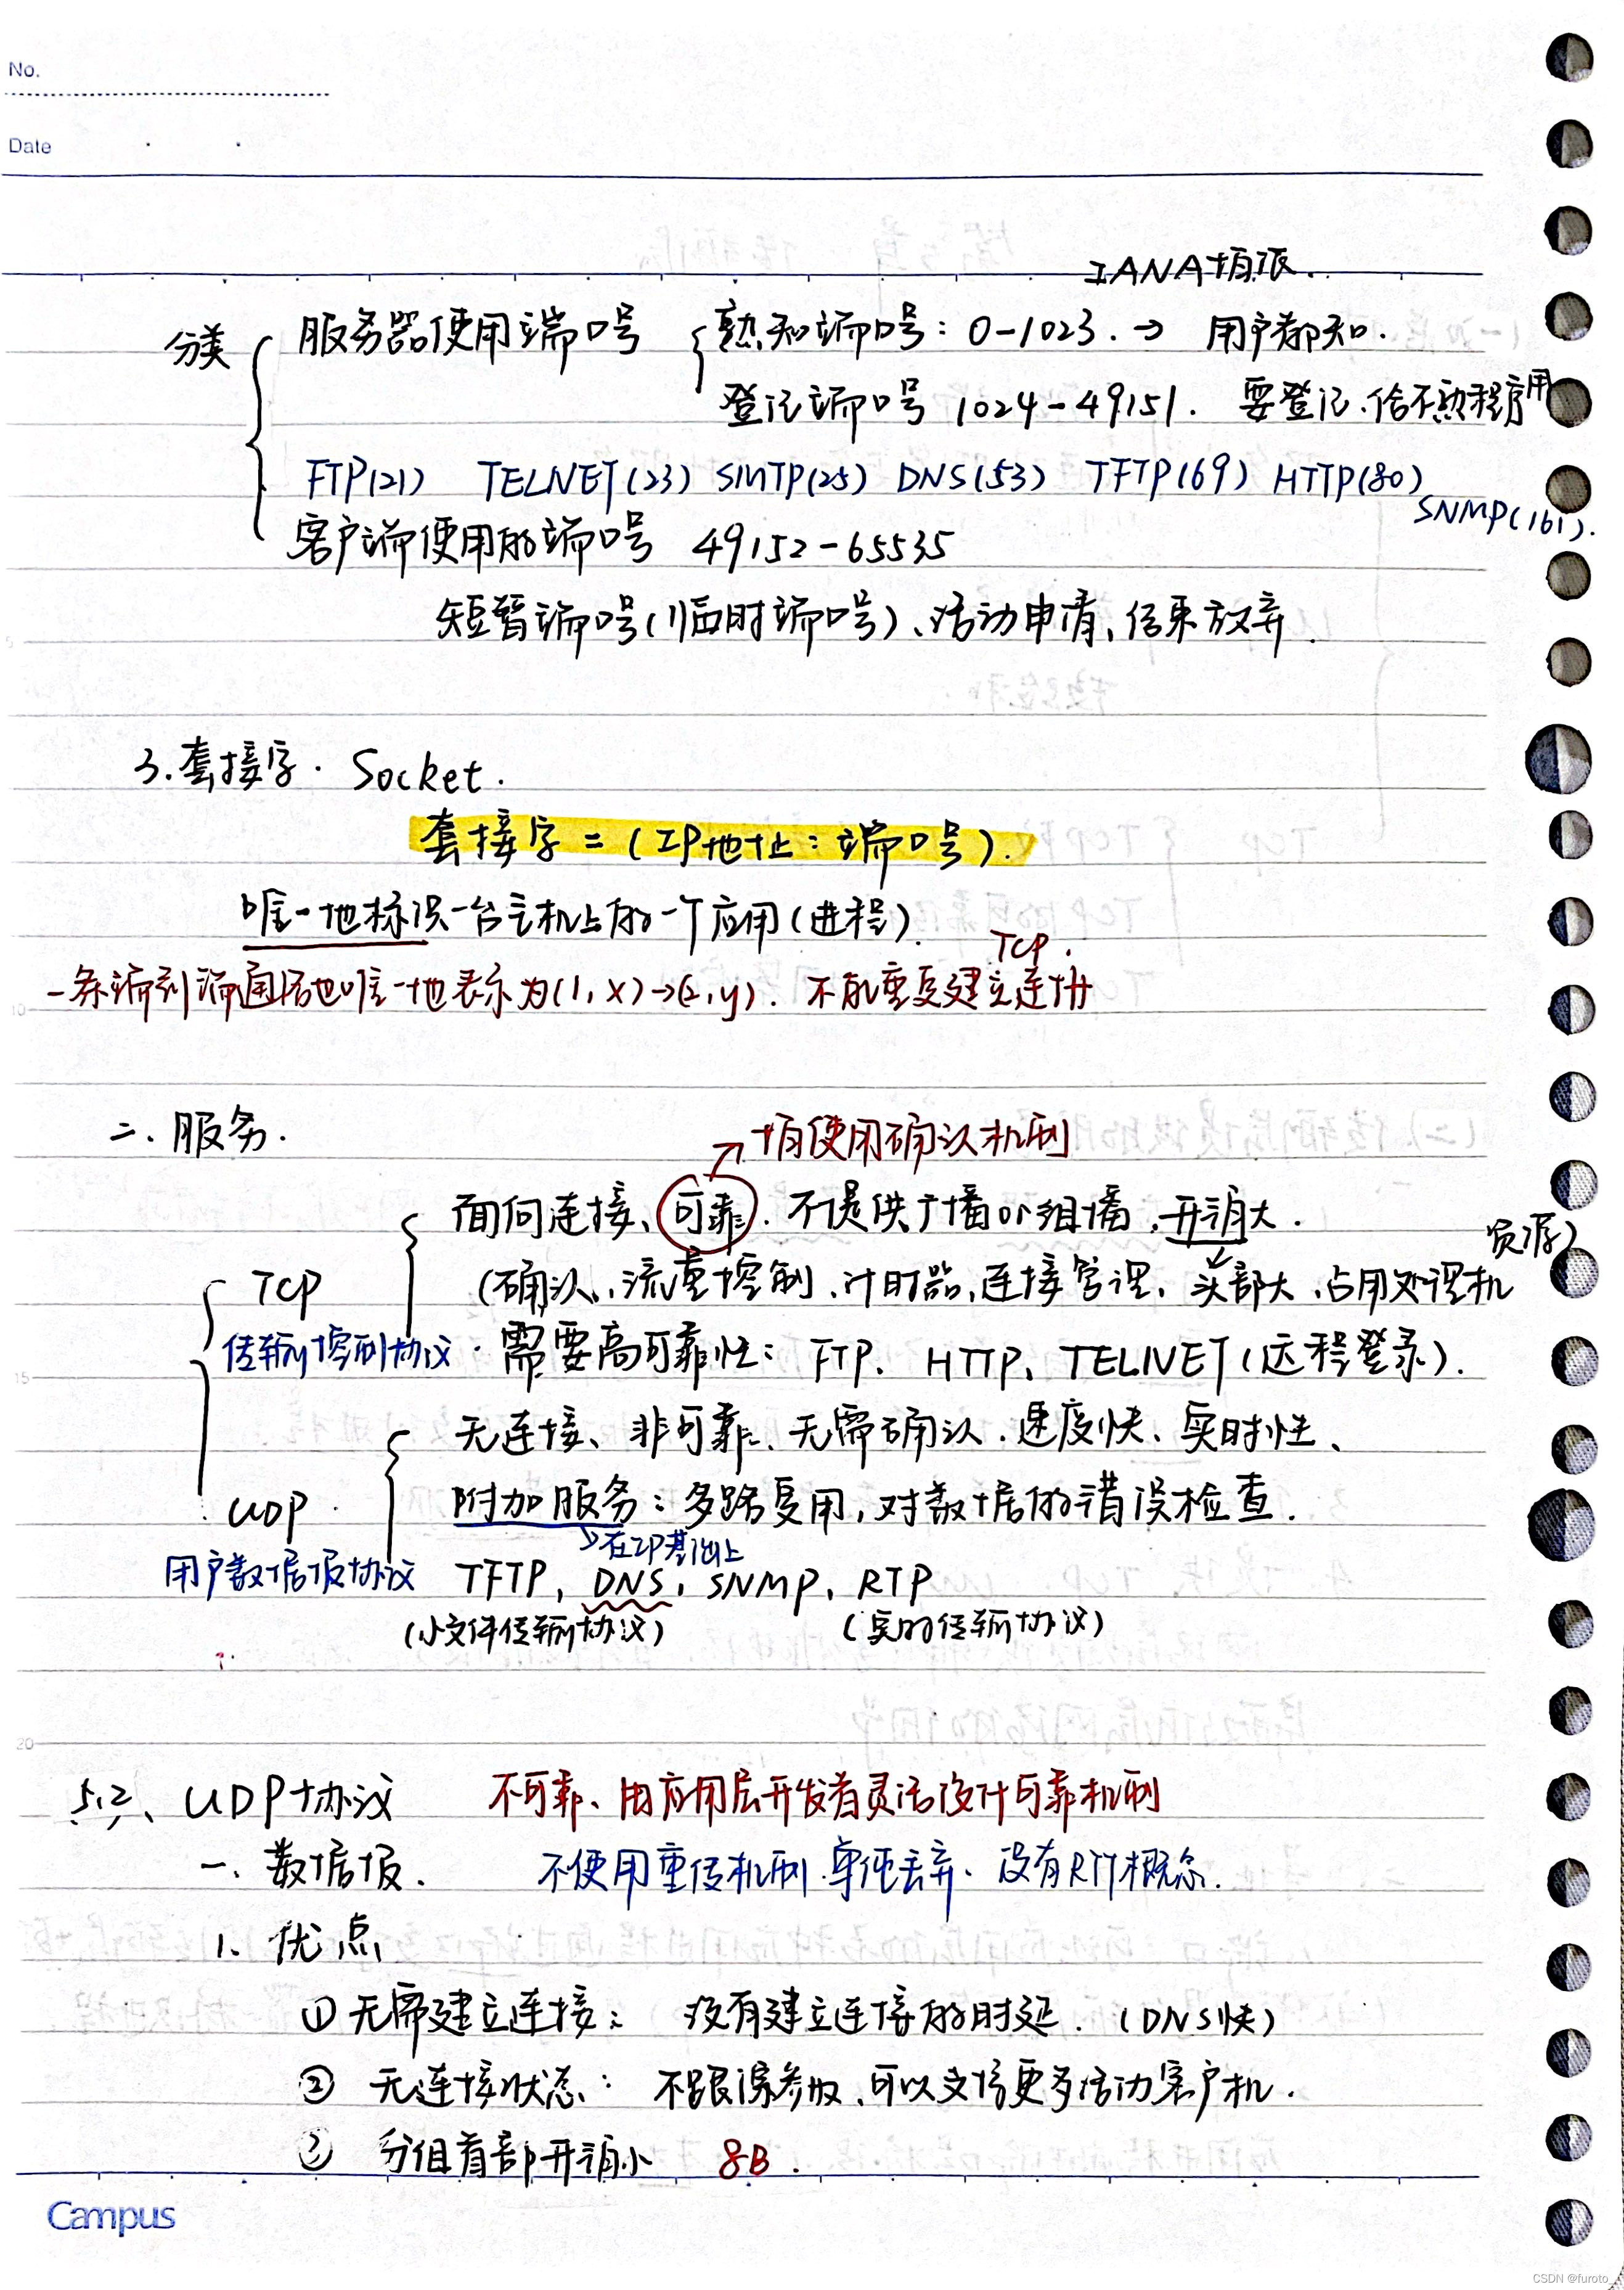 No.
Date
IANA指派.
分类 服务器使用端口号 熟知端口号: 0-1023. → 用户都知.
登记端口号 1024-49151. 要登记.给不熟程序用
FTP(21) TELNET(23) SMTP(25) DNS(53) TFTP(69) HTTP(80) SNMP(161).
客户端使用的端口号 49152-65535
短暂端口号(临时端口号)、活动申请、结束放弃.
3.套接字. Socket.
套接字=(IP地址:端口号).
唯一地标识一台主机上的一个应用(进程).
TCP.
一条端到端通信也唯一地表示为(1,x)→(2,y). 不能重复建立连接
二.服务.
→指使用确认机制
面向连接、可靠.不提供广播or组播,开销大.
TCP (确认、流量控制.计时器,连接管理. 头部大.占用处理机资源)
传输控制协议 . 需要高可靠性: FTP. HTTP, TELNET(远程登录).
无连接、非可靠、无需确认.速度快、实时性、
UDP. 附加服务:多路复用,对数据的错误检查.
→在IP基础上
用户数据报协议 TFTP, DNS, SNMP, RTP
(小文件传输协议) (实时传输协议)
5.2、UDP协议 不可靠、由应用层开发者灵活设计可靠机制
一.数据报. 不使用重传机制.单纯丢弃.没有RTT概念.
1.优点
①无需建立连接: 没有建立连接的时延.(DNS快)
② 无连接状态: 不跟踪参数、可以支持更多活动客户机.
③ 分组首部开销小 8B.
5
10
15
20
Campus
CSDN @furoto_